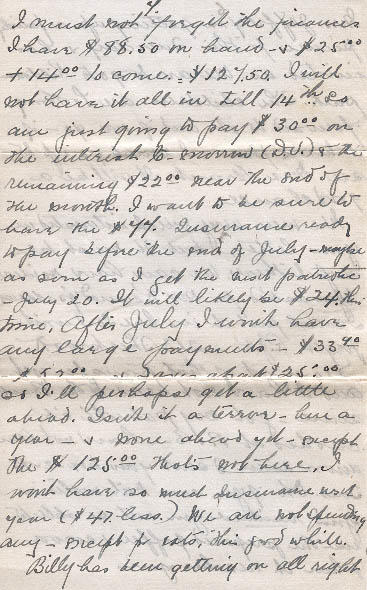 4
I must not forget the finances
I have $88.50 on hand - & $25.00
+ 14.00 to come = $127.50. I will
not have it all in till 14th. so
am just going to pay $30.00 on
the interest to-morrow (D.V.) & the
remaining $22.00 near the end of
the month. I want to be sure to
have the $44. Insurance ready
to pay before the end of July - maybe
as soon as I get the next patriotic
- July 20. It will likely be $24. this
time. After July I won't have
any large payments - $33.40
$25.00
so I'll perhaps get a little
ahead. Isn't it a terror - here a
year - & none ahead yet - except
the $125.00 that's not here. I
won't have so much Insurance next
year ($47. less.) We are not spending
any - except for eats, this good while.
Billy has been getting on all right